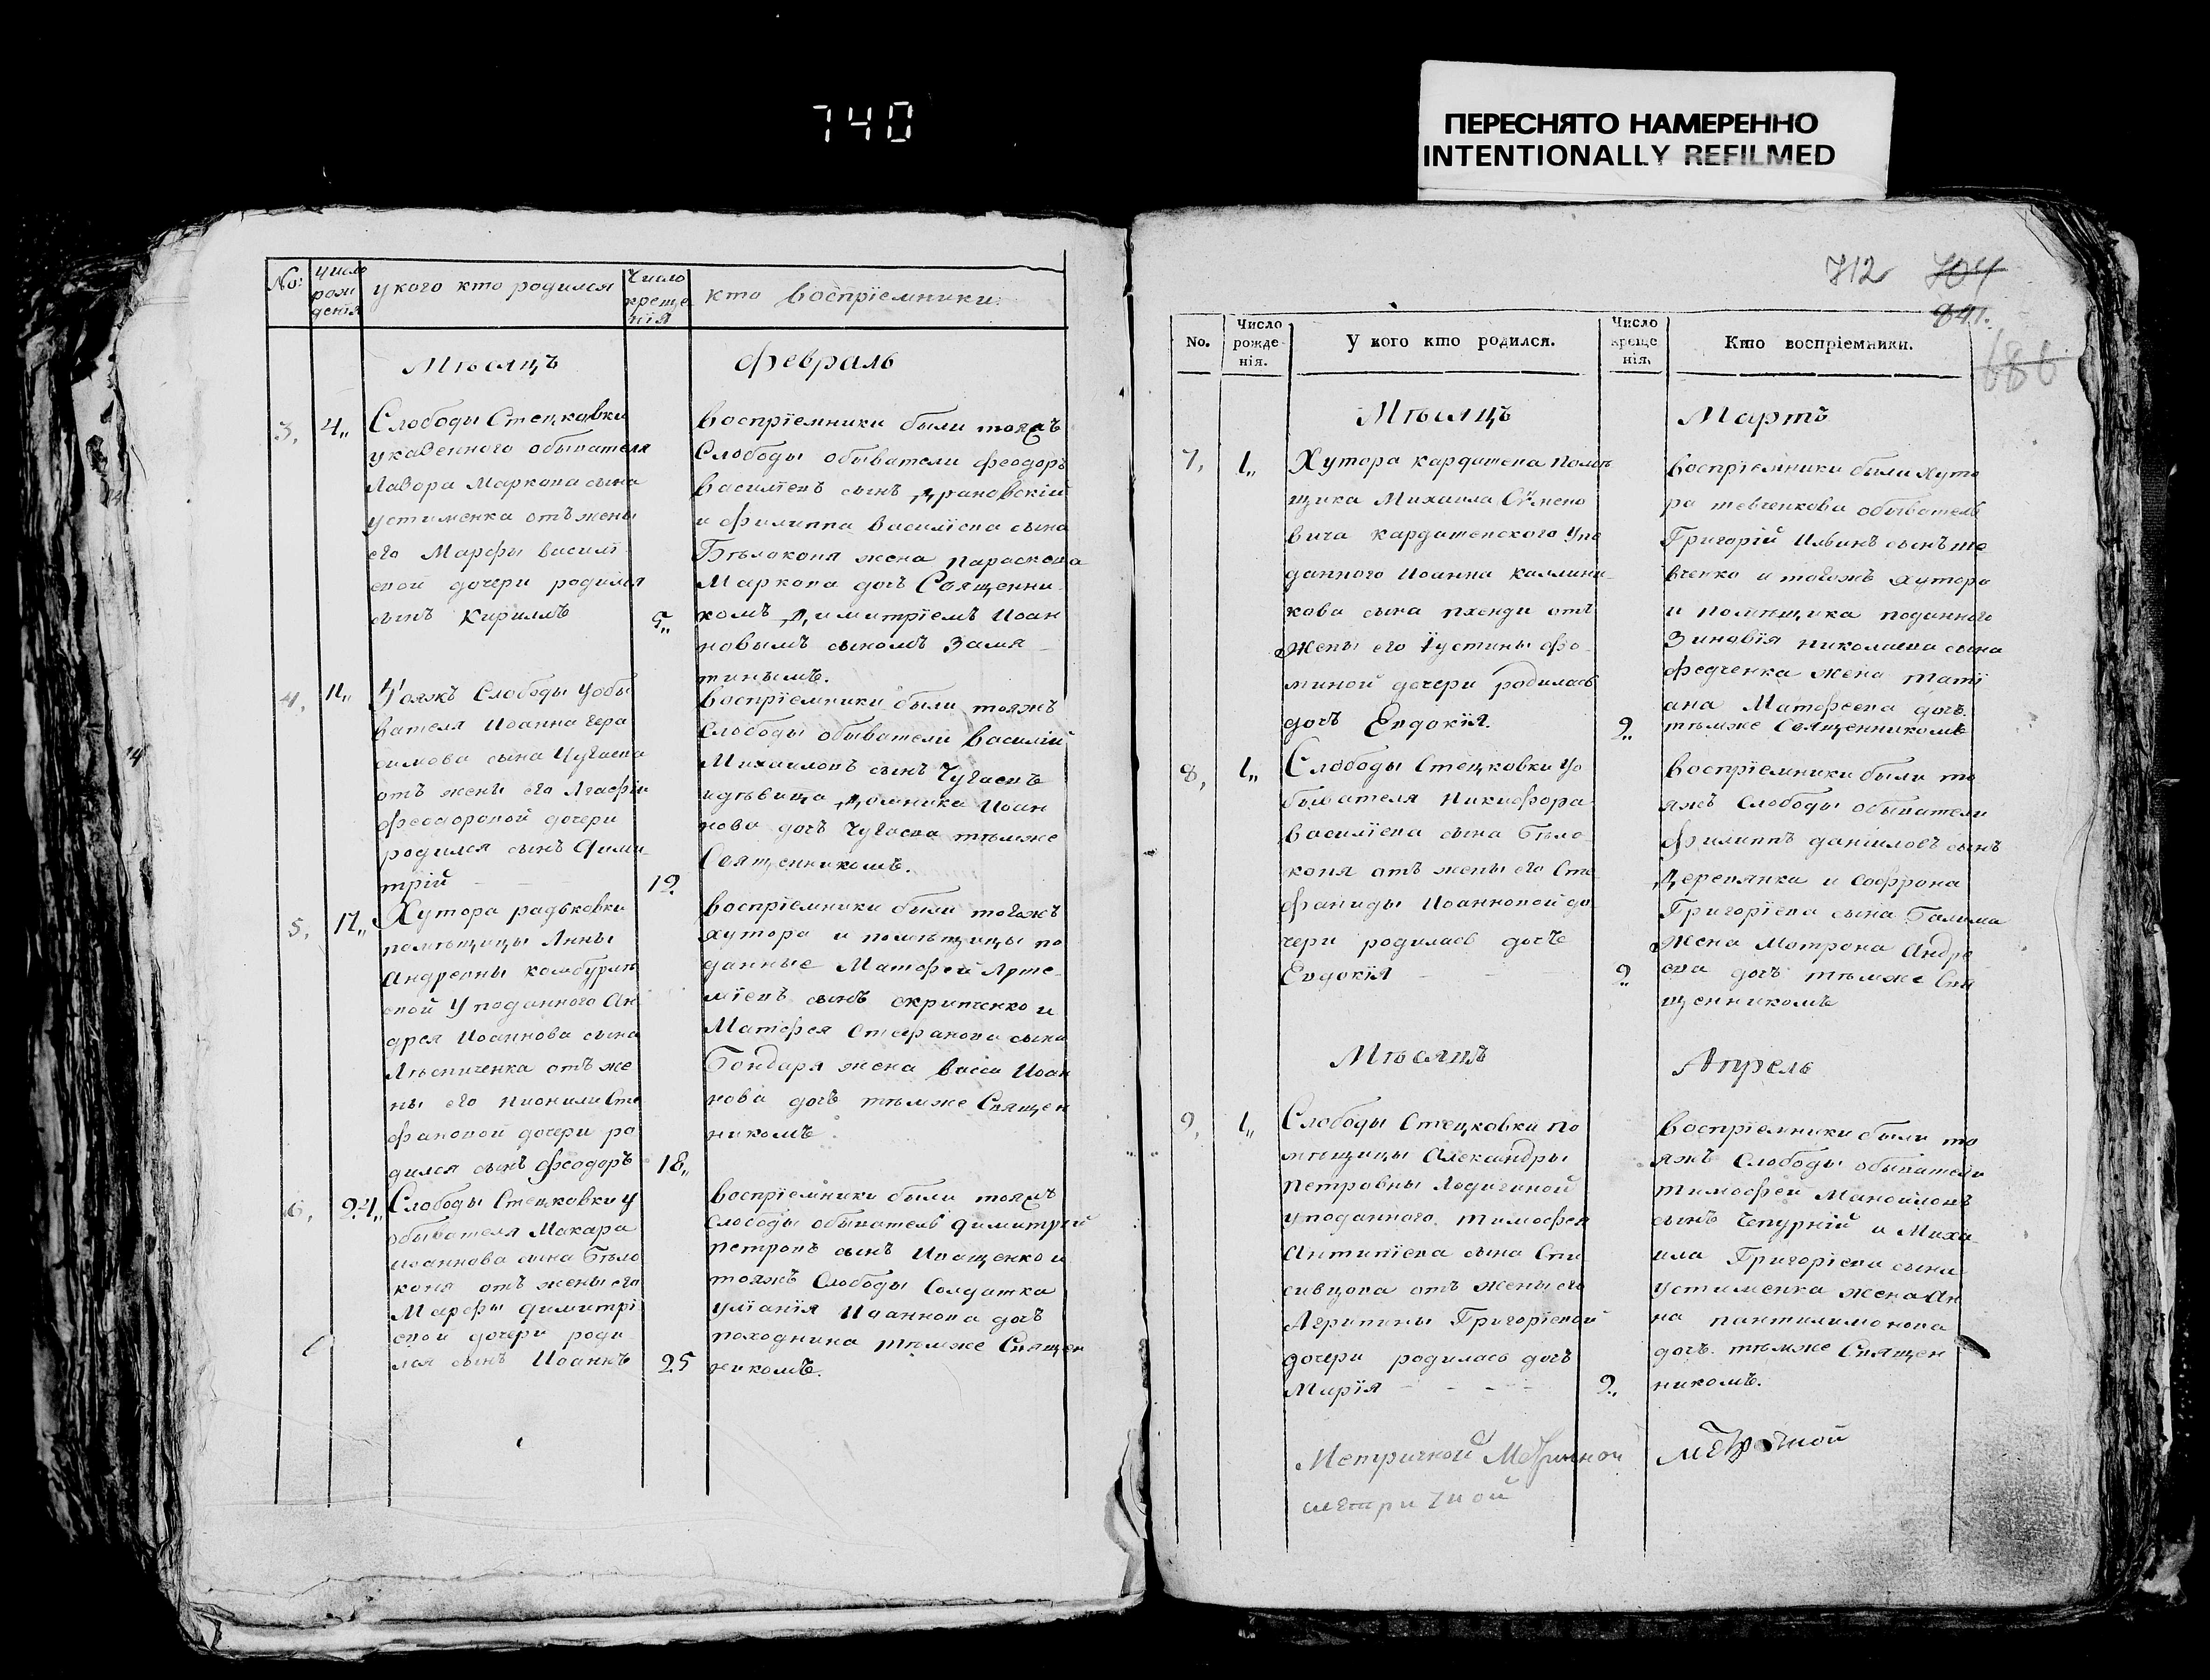 740
ПЕРЕСНЯТО НАМЕРЕННО
INTENTIONALLY REFILMED
No:
Число рож денія
у кого кто родился
Число креще нія
кто воспріемники:
Мѣсяцъ
февраль
3,
4,,
Слободы Стецковки
указенного обывателя
Лавора Маркова сына
устименка отъ жены
его Марфы василі
евой дочери родился
сынъ Кирилъ
5,,
воспріемники были тояжъ
Слободы обыватели феодоръ
василіевъ сынъ
и филиппа василіева сына
Бѣлоконя жена параскева
Маркова дочь Священни
комъ Димитріемъ Иоан
новымъ сыномъ Замя
тинымъ.
4,
11,,
Тояжъ Слободы У обы
вателя Иоанна гера
симова сына Чугаева
отъ жены его Агафіи
феодоровой дочери
родился сынъ Дими
трій
12
воспріемники были тояжъ
Слободы обыватели василій
Михаиловъ сынъ Чугаевъ
идѣвица Домника Иоан
нова дочь Чугаева тѣмже
Священникомъ.
5,
17,,
Хутора радьковки
помѣщицы Анны
Андреевны камбурлѣ
евой У поданного Ан
дрея Иоаннова сына
отъ же
ны его Сте
фановой дочери ро
дился сынъ феодоръ
18,,
воспріемники были тогожъ
хутора и помѣщицы по
данные Матфей Арте
міевъ сынъ скрипченко и
Матфея Стефанова сына
Бондаря жена васса Иоан
нова дочь тѣмже Священ
никомъ.
6,
24,,
Слободы Стецковки у
обывателя Макара
иоаннова сына Бѣло
коня отъ жены его
Марфы димитрі
евой дочери роди
лся сынъ Иоаннъ
25
воспріемники были тояжъ
слободы обыватель димитрий
петровъ сынъ Иващенко и
тояжъ Слободы Солдатка
уліанія Иоаннова дочь
походнина тѣмже Священ
никомъ.
712
704
841.
686
No.
Число рожде нія.
У кого кто родился.
Число креще нія.
Кто воспріемники.
Мѣсяцъ
Мартъ
7,
1,,
Хутора кардашена помѣ
щика Михаила Сѣмено
вича кардашевского Упо
данного Иоанна каллини
кова сына отъ
жены его Іустины фо
миной дочери родилась
дочь Евдокія.
2,,
воспріемники были Хуто
ра шевченкова обыватель
Григорій Ильинъ сынъ ше
вченко и тогожъ хутора
и помѣщика поданного
Зиновія николаева сына
федченка жена тати
ана Матфеева дочь
тѣмже Священникомъ
8,
1,,
Слободы Стецковки Уо
бывателя Никифора
василіева сына бѣло
коня отъ жены его Сте
фаниды Иоанновой до
чери родилась дочь
Евдокія
2
воспріемники были то
яжъ Слободы обыватели
филиппъ даніиловъ сынъ
Деревянка и Софрона
Григоріева сына
жена Мотрона Андре
ева дочь тѣмже Свя
щенникомъ
Мѣсяцъ
Апрель
9,
1,,
Слободы Стецковки по
мѣщицы Александры
Петровны Лодыгиной
уподанного тимофея
Антипіева сына Спи
сивцова отъ жены его
Агрипины Григоріевой
дочери родилась дочь
Марія
2,,
воспріемники были то
яжъ Слободы обыватели
тимофей Мануиловъ
сынъ Чепурній и Миха
ила Григоріева сына
Устименка жена Ан
на пантилимонова
дочь тѣмже Священ
никомъ.
Метричной Метричной
метричной
метричной